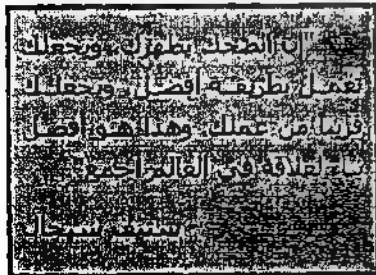 "إن الضحك يطهرك، ويجعلك
تعمل بطريقة أفضل، ويجعلك
قريبا من عملك وهذا هو أفضل
ما في العالم أجمع"